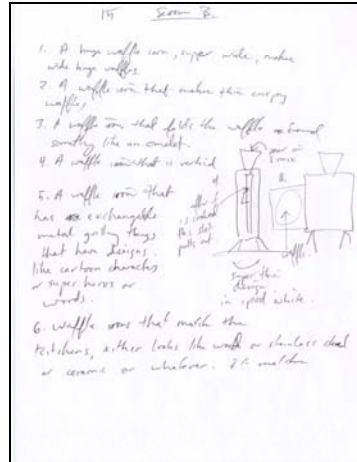 15 Session B.
1. A huge waffle iron, super wide, makes
wide huge waffles.
2. A waffle iron that makes thin crispy
waffles,
3. A waffle iron that folds the waffle around
something like an omelet.
4. A waffle iron that is vertical
pour in
mix
5. A waffle iron that
has exchangeable
metal things
that have designs.
like cartoon characters
or super heros or
words.
is cooked
this slot
pulls out
waffle.
super thin
design
in ipod white.
6. waffle irons that match the
kitchens, either looks like wood or stainless steel
or ceramic or whatever. It matches